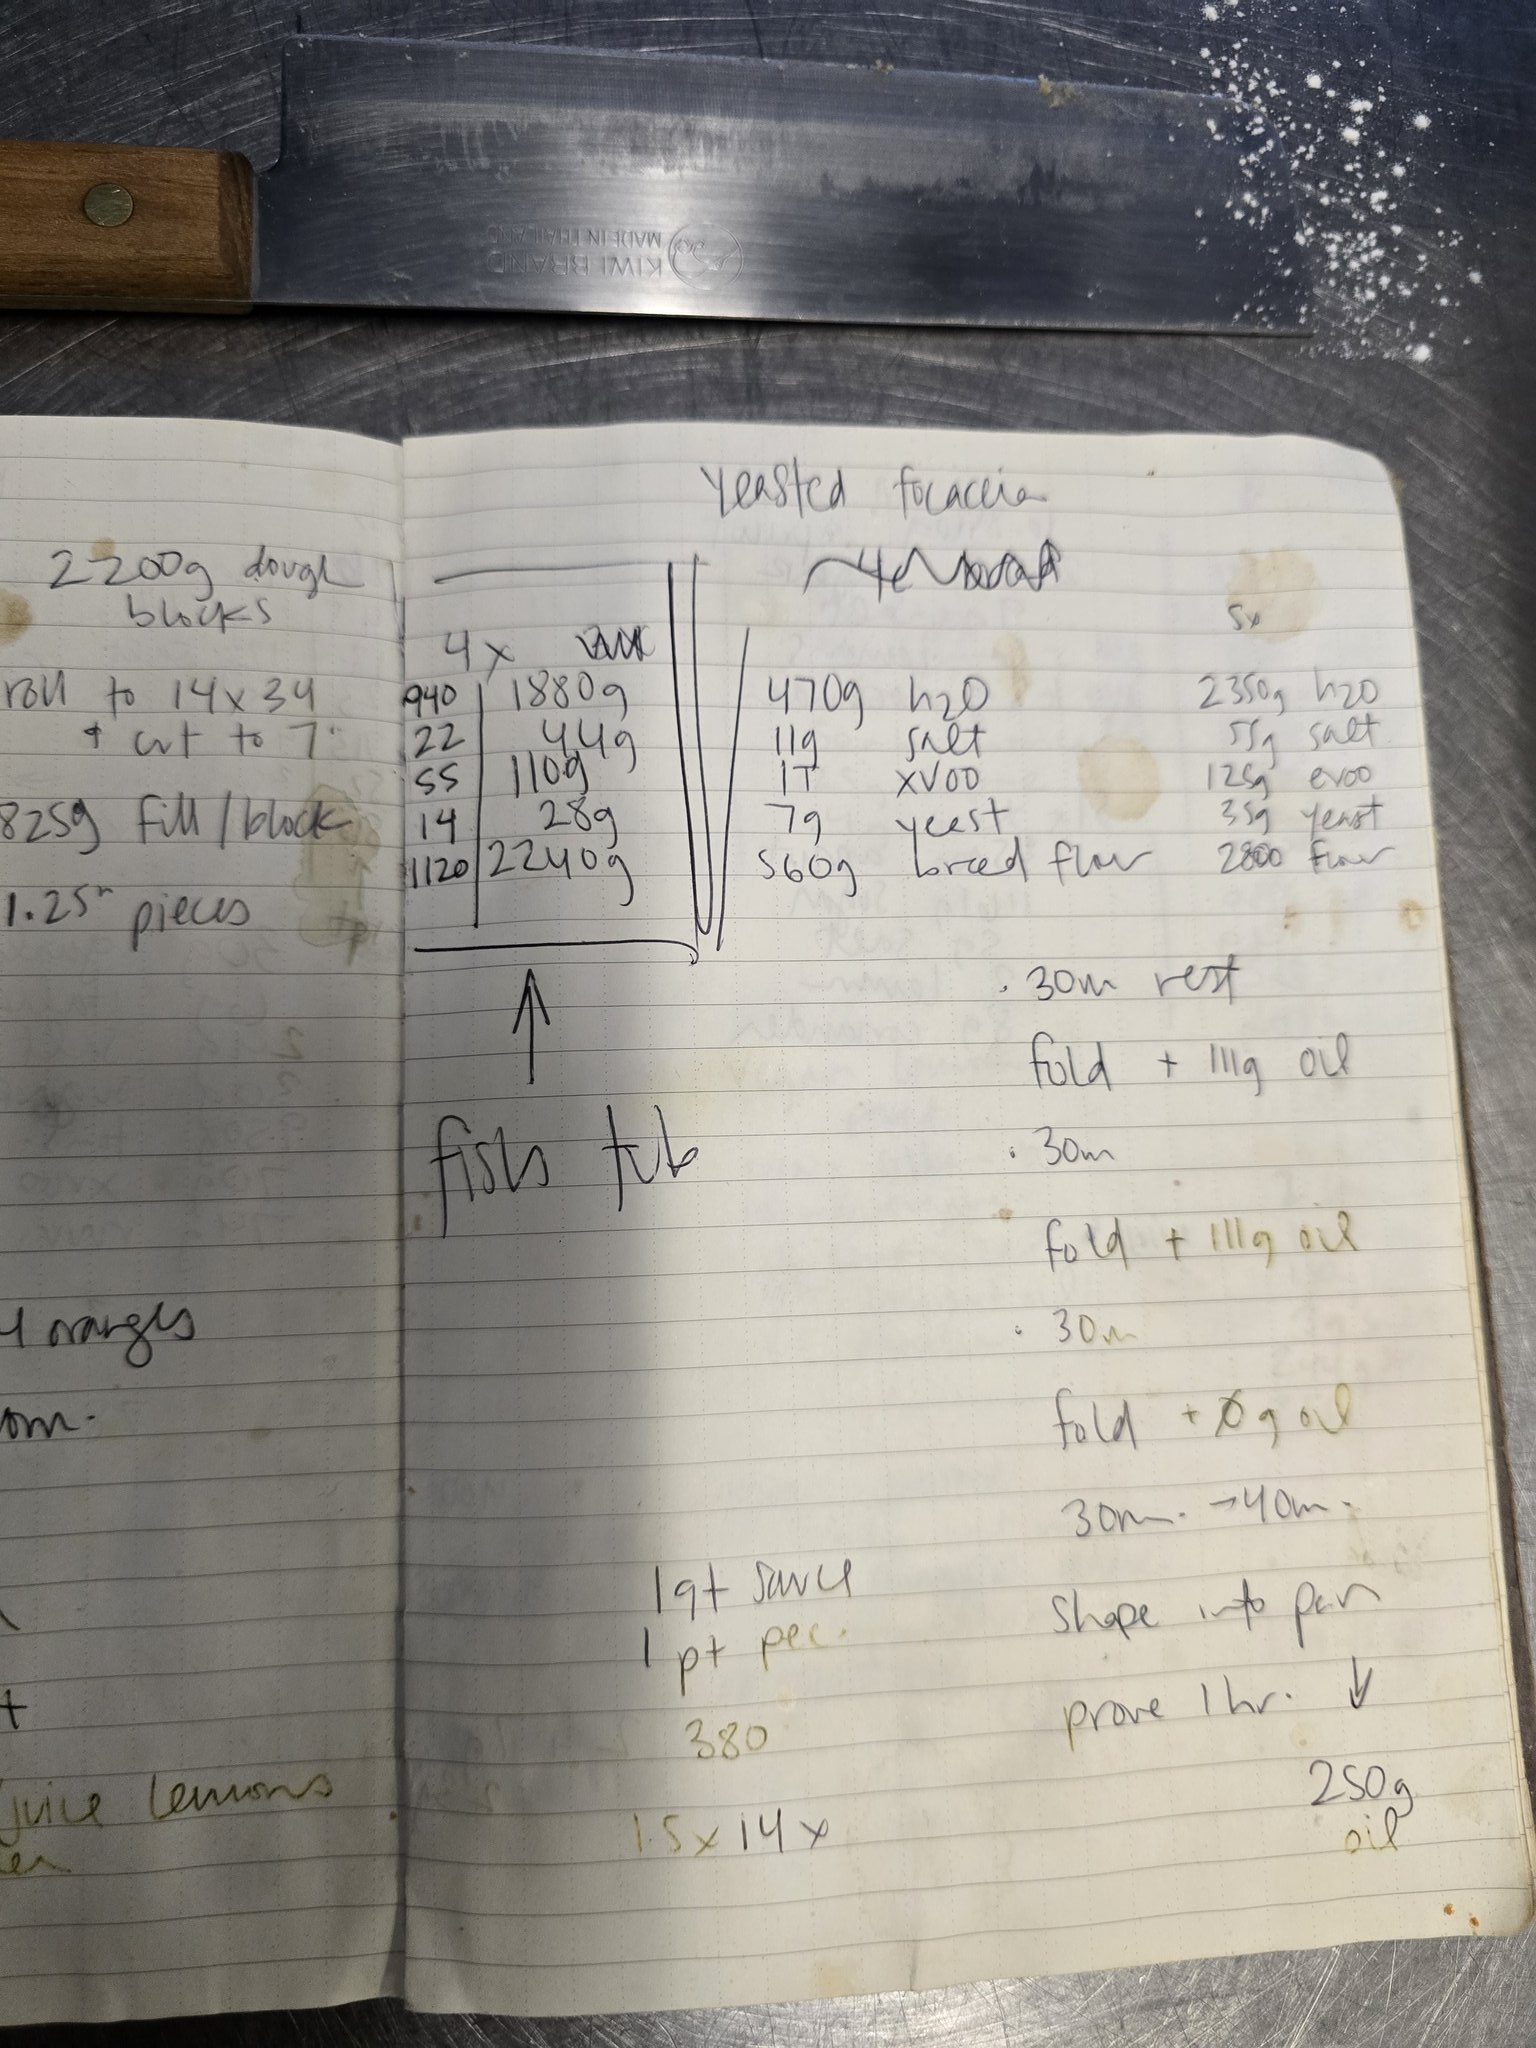 KIWI BRAND
MADE IN THAILAND
2200g dough
blocks
roll to 14 x 34
+ cut to 7"
825g fill/block
1.25" pieces
4 oranges
juice lemons
yeasted focaccia
4x
940 1880g
22 44g
55 110g
14 28g
1120 2240g
fish tub
470g h2O
11g salt
1T xvoo
7g yeast
560g bread flour
5x
2350g h2O
55g salt
125g evoo
35g yeast
2800 flour
· 30m rest
fold + 111g oil
· 30m
fold + 111g oil
· 30m
fold + 0g oil
30m. → 40m.
shape into pan
prove 1 hr. ↓
250g
oil
1 qt sauce
1 pt pec.
380
15 x 14 x